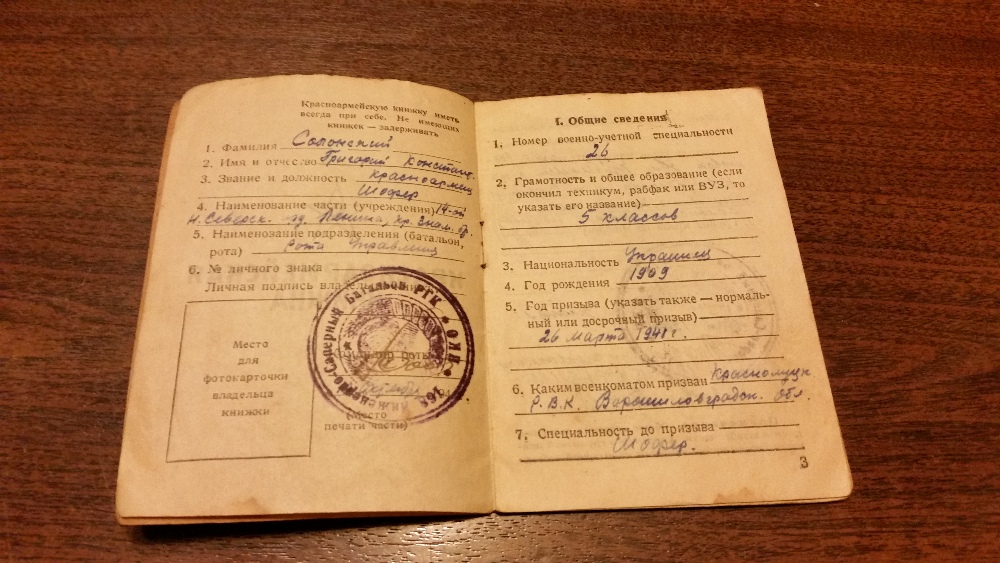 Красноармейскую книжку иметь
всегда при себе. Не имеющих
книжек — задерживать
1. Фамилия Солонский
2. Имя и отчество Григорий Констант.
3. Звание и должность красноармеец
Шофер
4. Наименование части (учреждения) 14-ой
Н. Северск. Ленина, Кр. Знам. бр.
5. Наименование подразделения (батальон,
рота) Рота Управления
6. № личного знака
Личная подпись
Место
для
фотокарточки
владельца
книжки
Инженерно-Саперный Батальон РГК ОЛБ 168
роты
(место
печати части)
I. Общие сведения
1. Номер военно-учетной специальности
26
2. Грамотность и общее образование (если
окончил техникум, рабфак или ВУЗ, то
указать его название)
5 классов
3. Национальность Украинец
4. Год рождения 1909
5. Год призыва (указать также — нормаль-
ный или досрочный призыв)
26 марта 1941 г.
6. Каким военкоматом призван Красно
Р.В.К. Ворошиловградск. обл.
7. Специальность до призыва
Шофер.
3